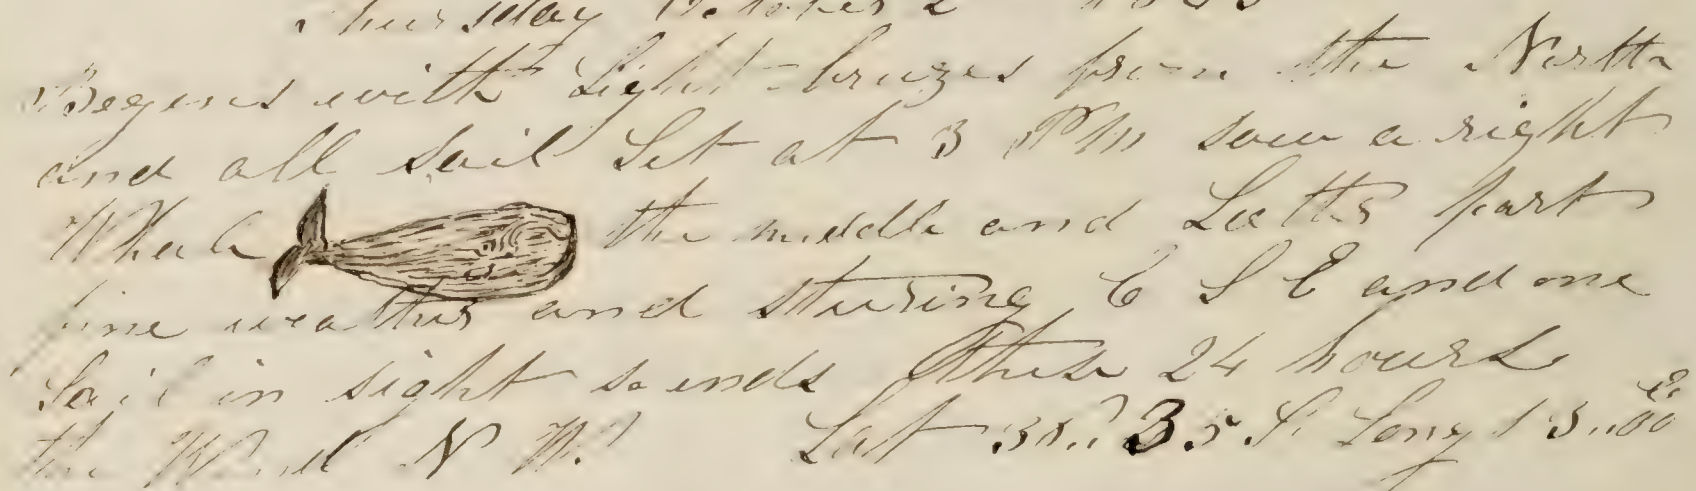 Thursday October 2
Begens with Light-bruzes from the North
and all Sail Set at 3 PM saw a right
Whale the middle and Latter part
fine weather and stureing E S E and one
Sail in sight so ends these 24 hours
the Wind N W Lat S Long 13